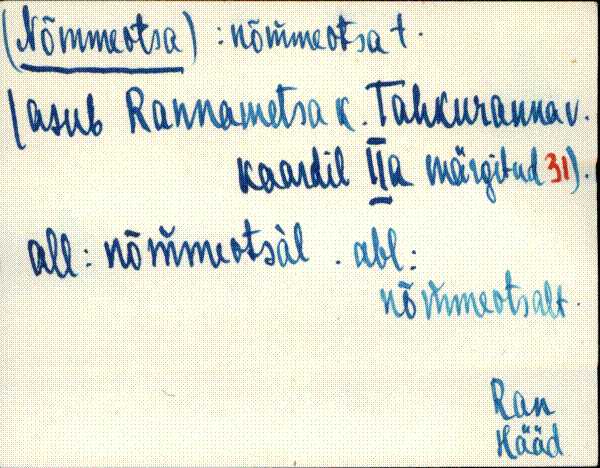 (Nõmmeotsa) : nõm̆meotsa t.
(asub Rannametsa k. Tahkuranna v.
kaardil IIa märgitud 31).
all: nõm̆meotsàl . abl:
nõm̆meotsalt.
Ran
Hääd